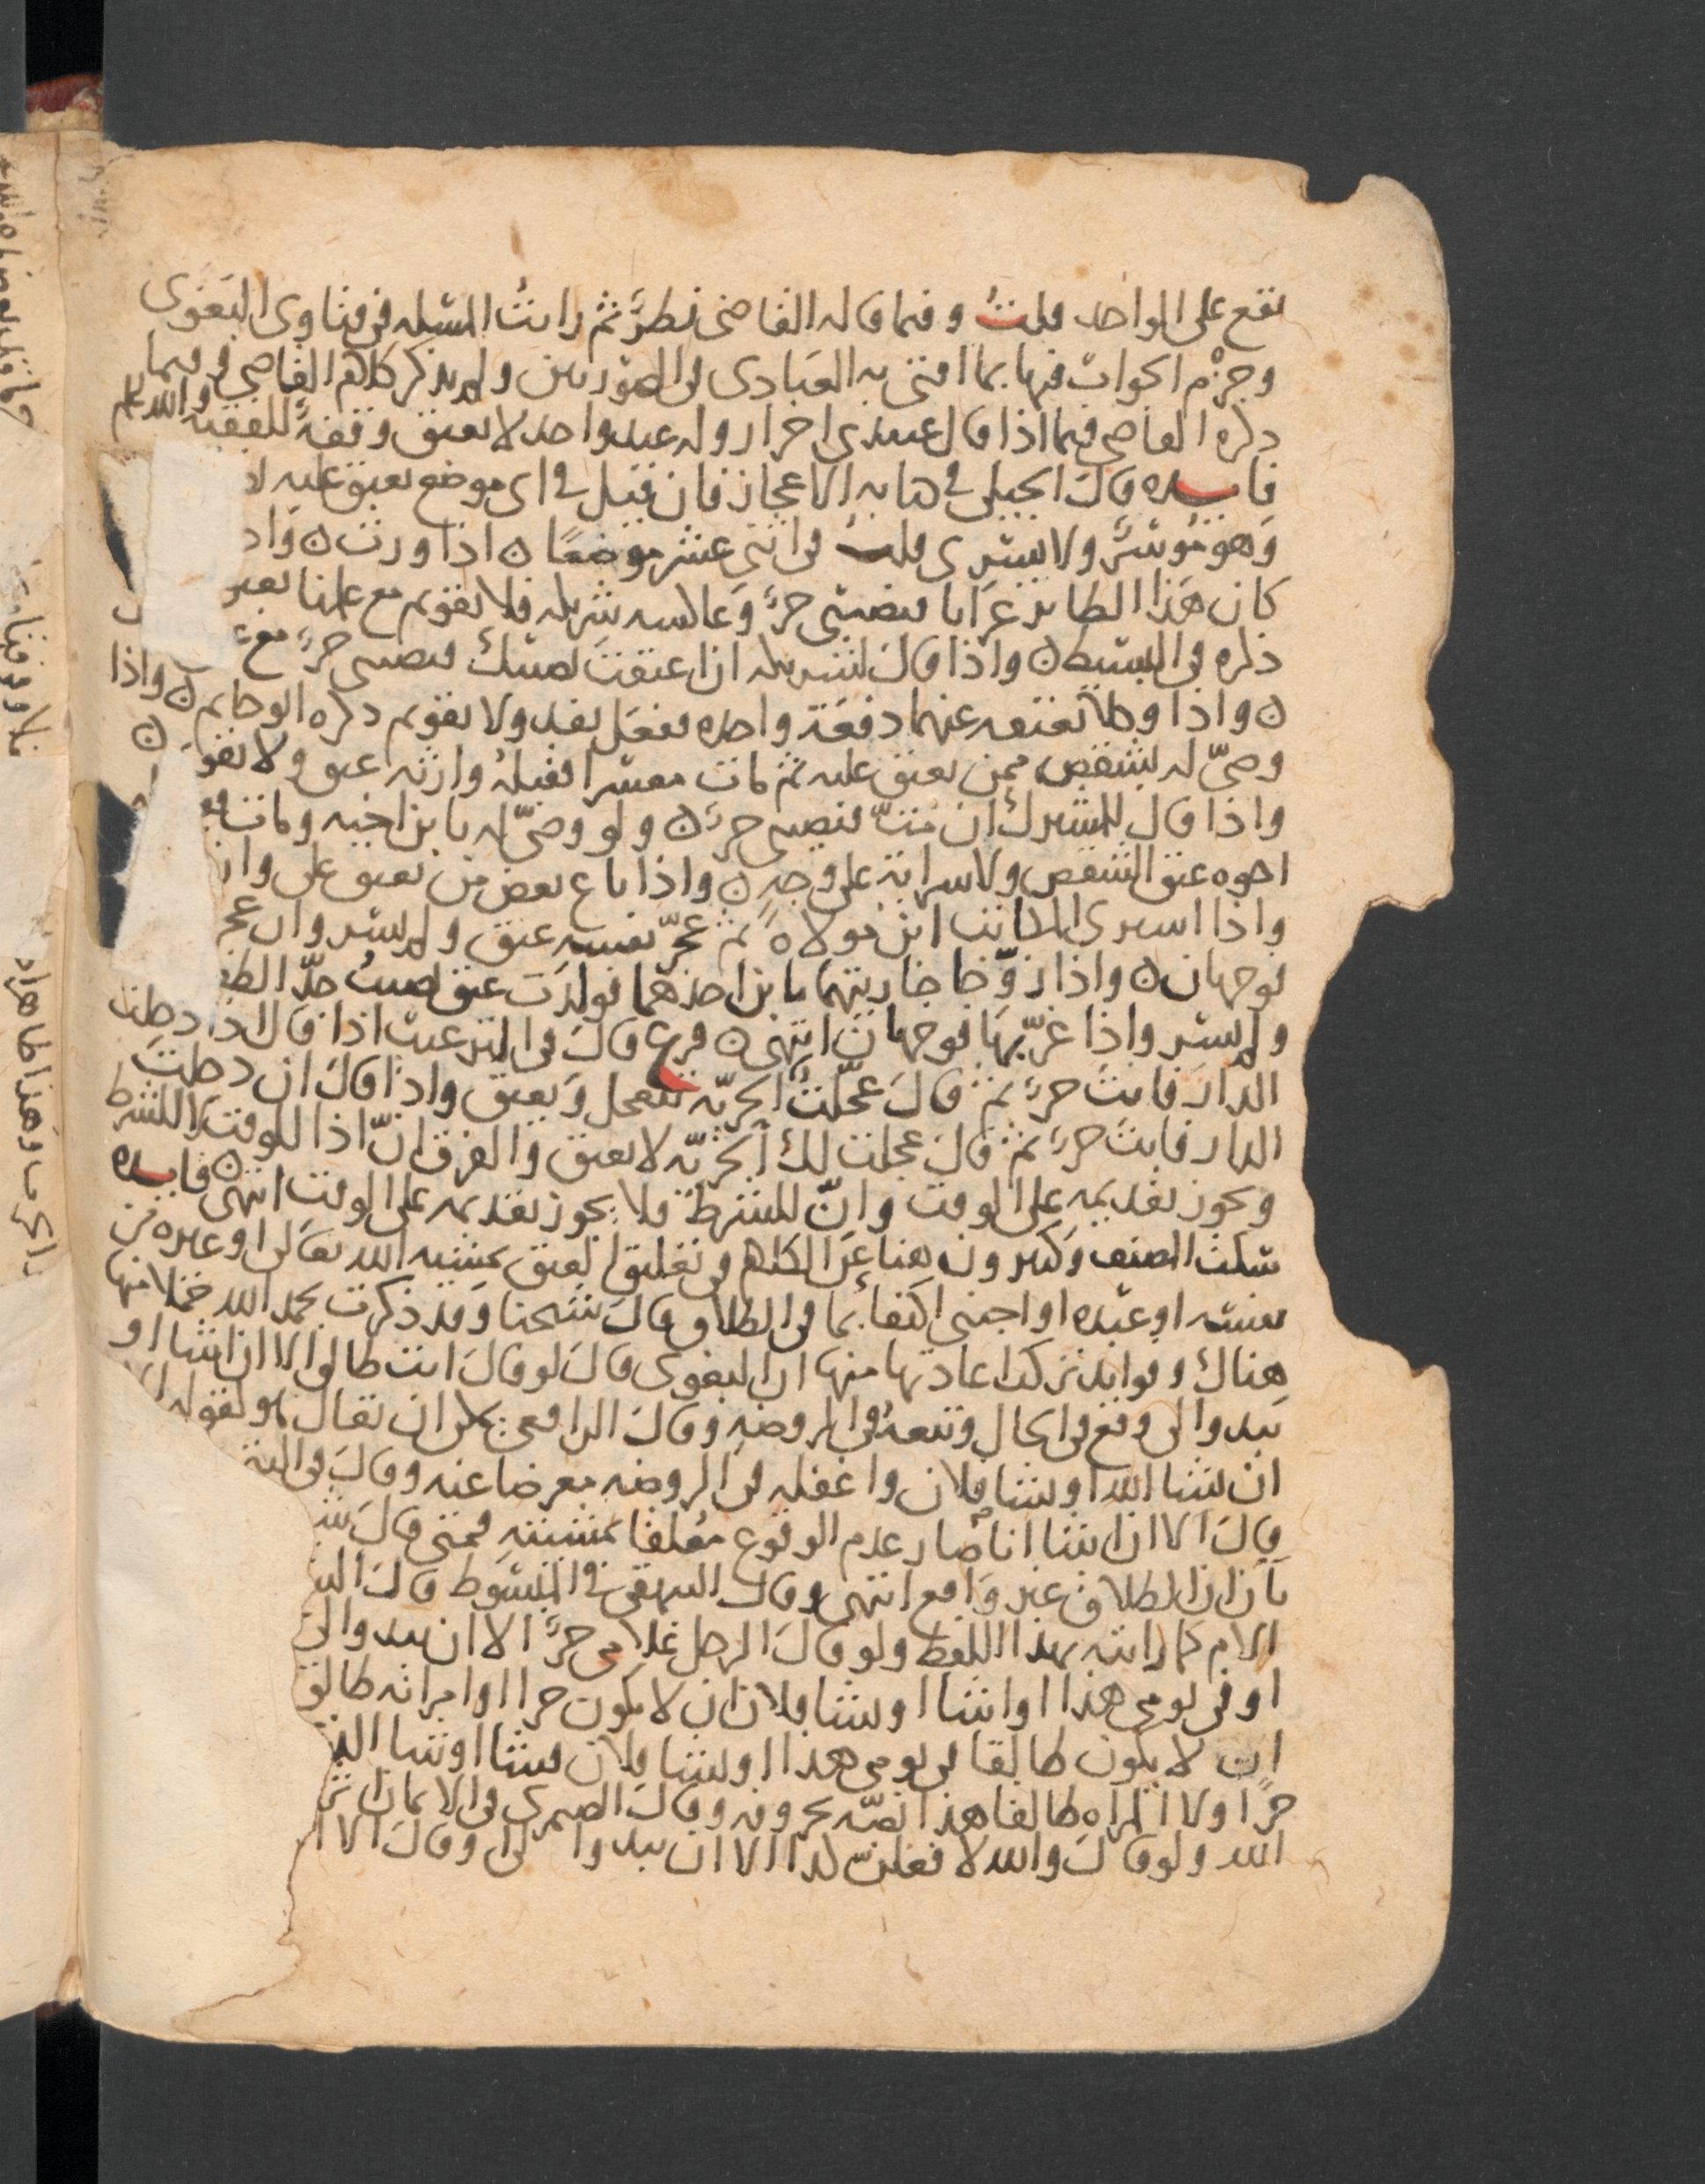 تقع على الواحد قلت وفيما قاله القاضي نظر ثم رايت المسله في فتاوى البغوى
وجزم الجواب فيها بما افتى به العبادى في الصورتين ولم يذكر كلام القاضي فيما
ذكره القاضي فيما اذا قال عبيدى احرار وله عبد واحد لا يعتق وقفة للفقيه والله اعلم
فايده قال الجيلى في كتابه الاعجاز فان قيل في اى موضع يعتق عليه
وهو موسر ولا يسرى قلت في اثنى عشر موضعا ٥ اذا ورث ٥ واذ
كان هذا الطاير غرابا فنصيبى حر وعاكسه شريكه فلا يقوم مع علمنا
ذكره في البسيط ٥ واذا قال لشريكه ان اعتقت نصيبك فنصيبى حر مع
٥ واذا وكلا بعتقه عنهما دفعة واحده ففعل نفد ولا يقوم ذكره الوحايم ٥ واذا
وصى له بشقص ممن يعتق عليه ثم مات معسرا فقبله وارثه عتق ولا يقو ٥
واذا قال المشرك ان مت فنصيبى حر ٥ ولو وصى له بابن اخيه ومات
اخوه عتق الشقص ولا سراية على وجه ٥ واذا باع بعض من يعتق على وار
واذا اشترى المكاتب ابن مولاه ثم عجز نفسه عتق ولم يسر وان عجز
فوجهان ٥ واذا زوجا جاريتهما بابن احدهما فولدت عتق نصيب جد الطف
ولم يسر واذا غر بها فوجهان انتهى ٥ فرع قال في الترغيب اذا قال اذا دخلت
الدار فانت حر ثم قال عجلت الحرية تتعجل ويعتق واذا قال ان دخلت
الدار فانت حر ثم قال عجلت لك الحرية لا يعتق والفرق ان اذا للوقت لا للشرط
ويجوز تقديمه على الوقت وان للشرط فلا يجوز تقديمه على الوقت انتهى ٥ فايده
سكت المصنف وكثيرون هنا عن الكلام في تعليق العتق بمشيه الله تعالى او غيره من
نفسه او عبده او اجنبى اكتفاء بما في الطلاق قال شيخنا وقد ذكرت بحمد الله جملا منها
هناك وفوايد تركت اعادتها منها ان البغوى قال لو قال انت طالق الا ان اشا او
يبدو لى وقع في الحال وتبعه في الروضه وقال الرافعى يمكن ان يقال هو كقوله
ان شا الله او شا فلان واغفله في الروضه معرضا عنه وقال في
قال الا ان اشا انا صار عدم الوقوع معلقا بمشيئته فمتى قال
بان ان الطلاق غير واقع انتهى وقال البيهقى في المبسوط قال
الام كما رايته بهذا اللفظ ولو قال الرجل غلامى حر الا ان يبدو لى
او في يومى هذا او اشا او يشا فلان ان لا يكون حرا او امراته طالق
ان لا يكون طالقا في يومى هذا او يشا فلان فشا او شا
حرا ولا المراه طالقا هذا نصه بحروفه وقال الصيمرى في الايمان
الله ولو قال والله لا فعلت كذا الا ان يبدو لى وقال الا